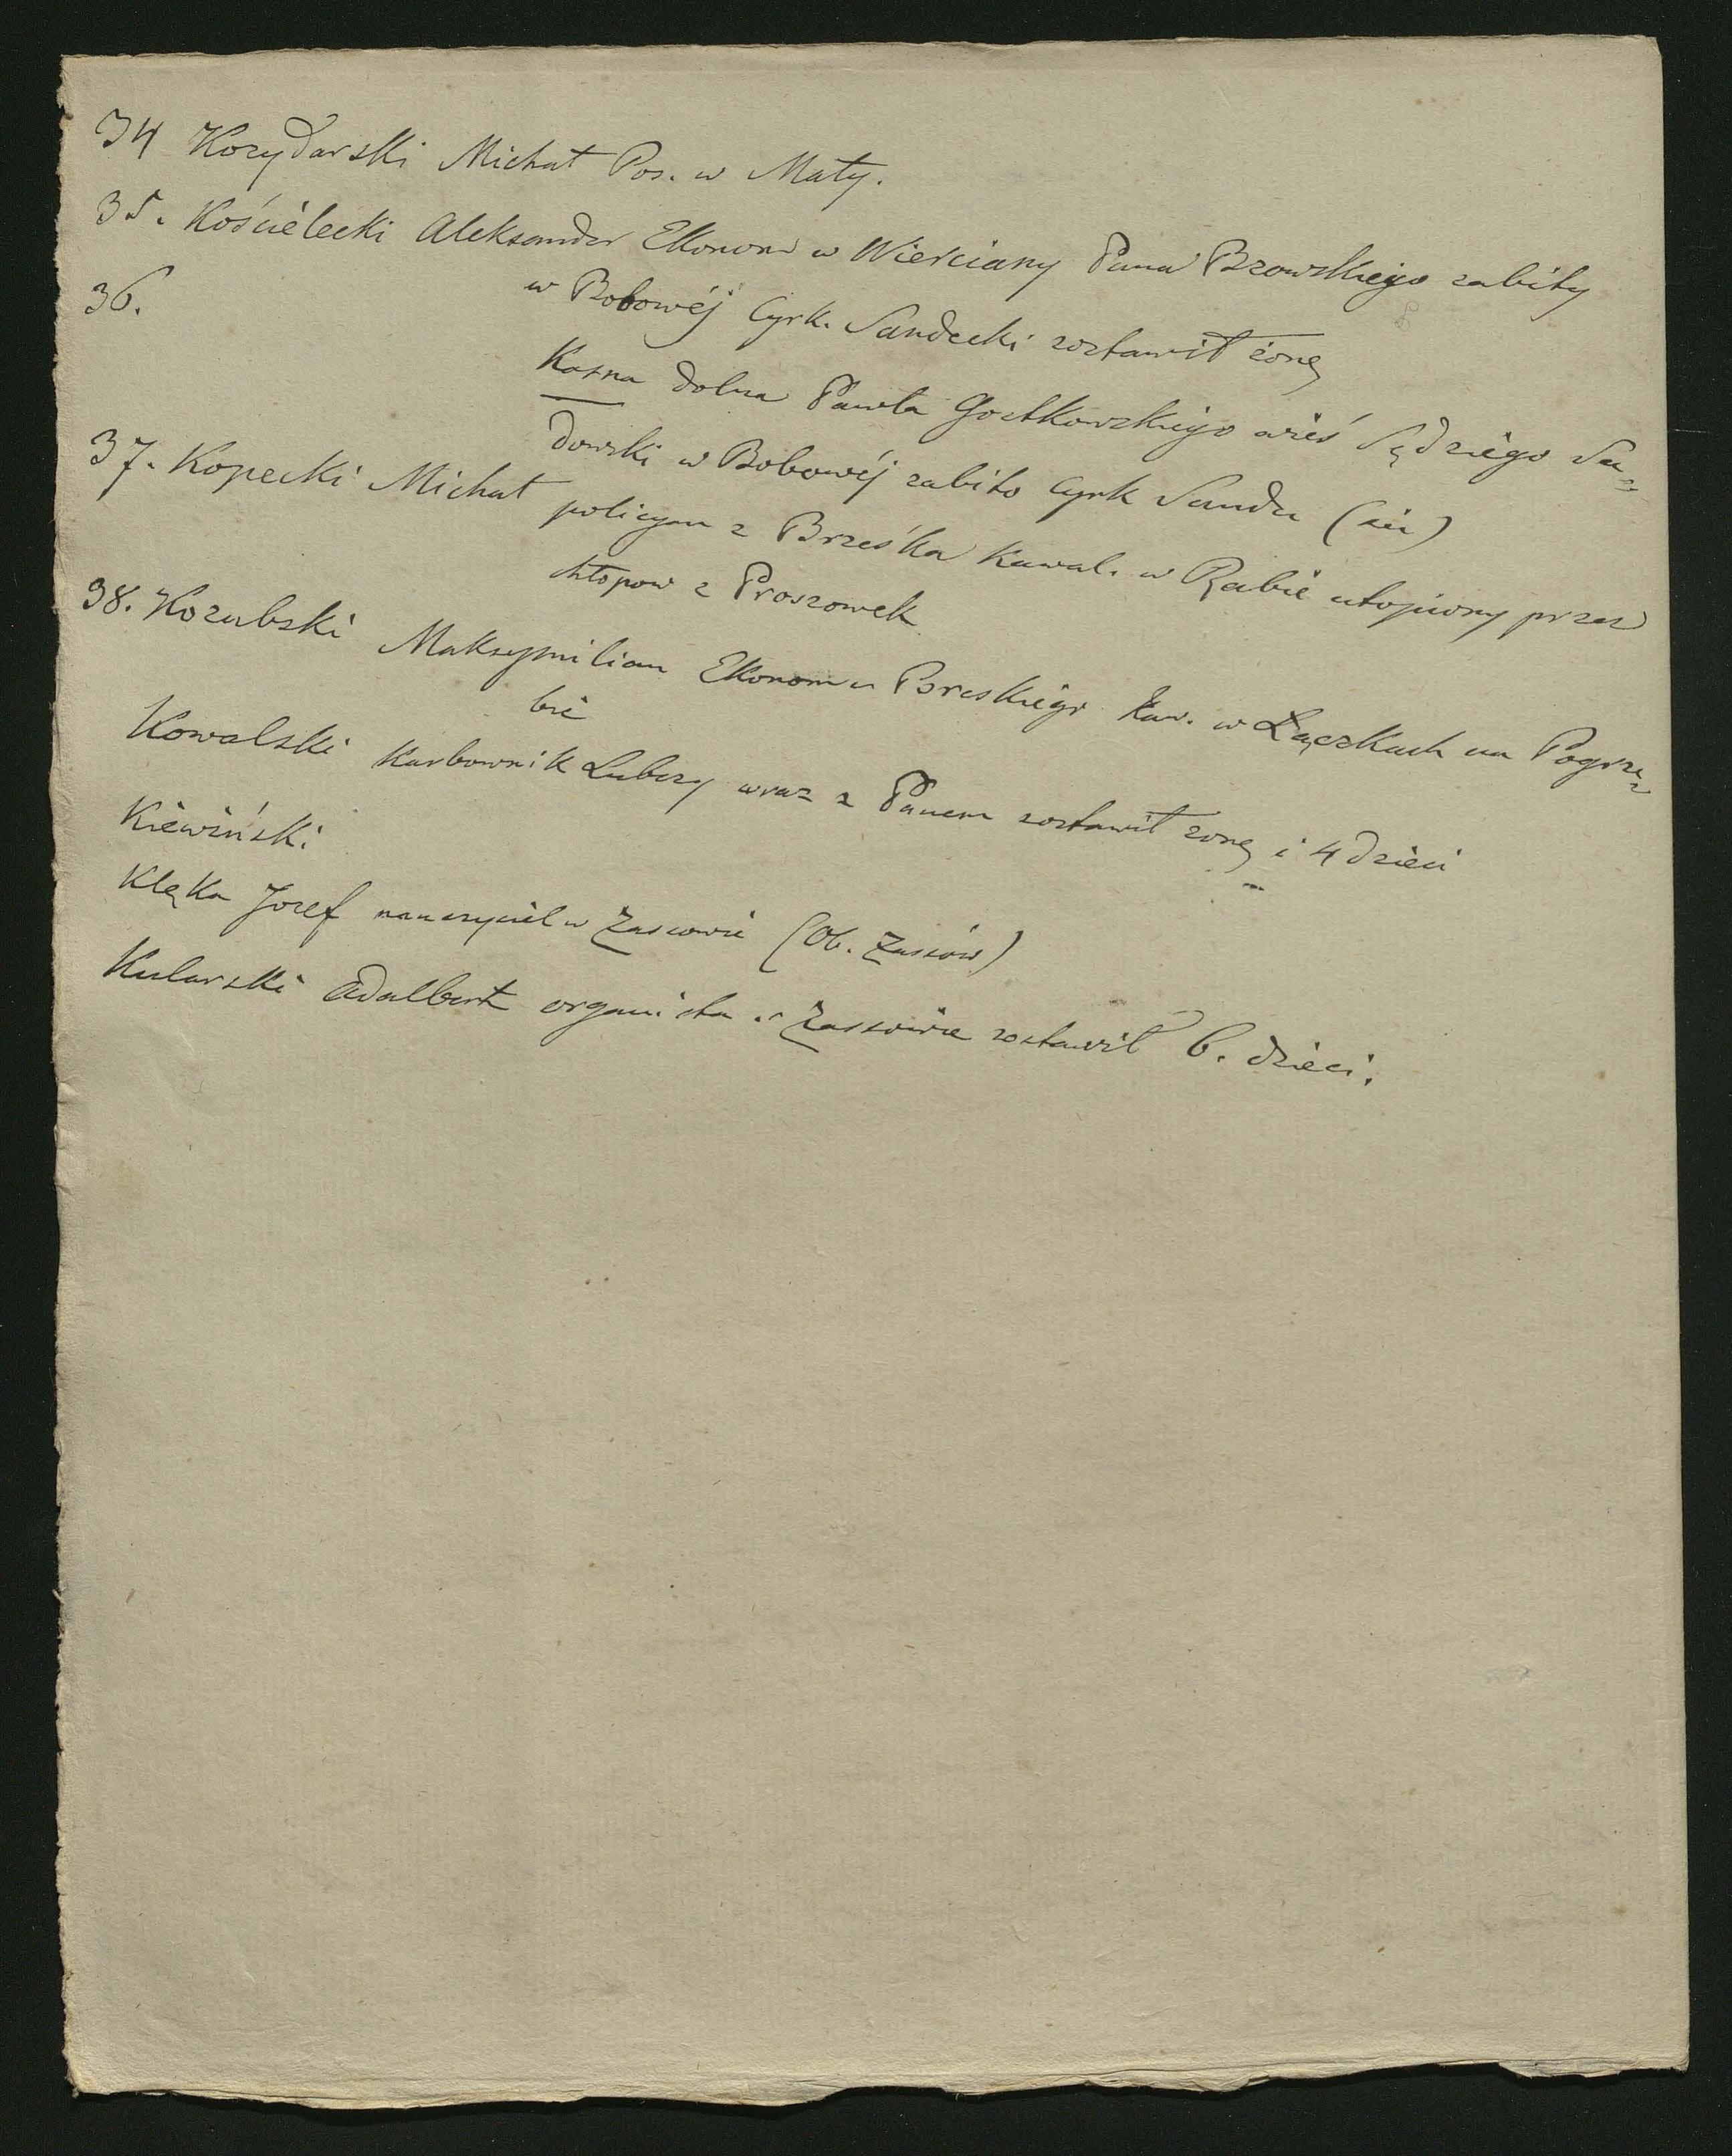 34 Kozydarski Michał Pos. w Mały.
35. Kościelecki Aleksander Ekonom w Wierciany Pana Bzowskiego zabity
w Bobowéj Cyrk. Sandecki zostawił żonę
36. Kasna dolna Pawła Gostkowskiego wieś Sędziego Sa=
dowski w Bobowéj zabito Cyrk Sande (sic)
37. Kopecki Michał policyan z Brzeska Kawal. w Rabie utopiony przez
chłopow z Proszowek
38. Kozubski Maksymilian Ekonom w Breskiego Kaw. w Łączkach na Pogrze=
bie
Kowalski Karbownik Lubczy wraz z Panem zostawił zonę i 4 dzieci
Kiewiński
Klęka Jozef nauczyciel w Zassowie (Ob. Zassów)
Kularski Adalbert organista w Zassowie zostawił 6. dzieci.